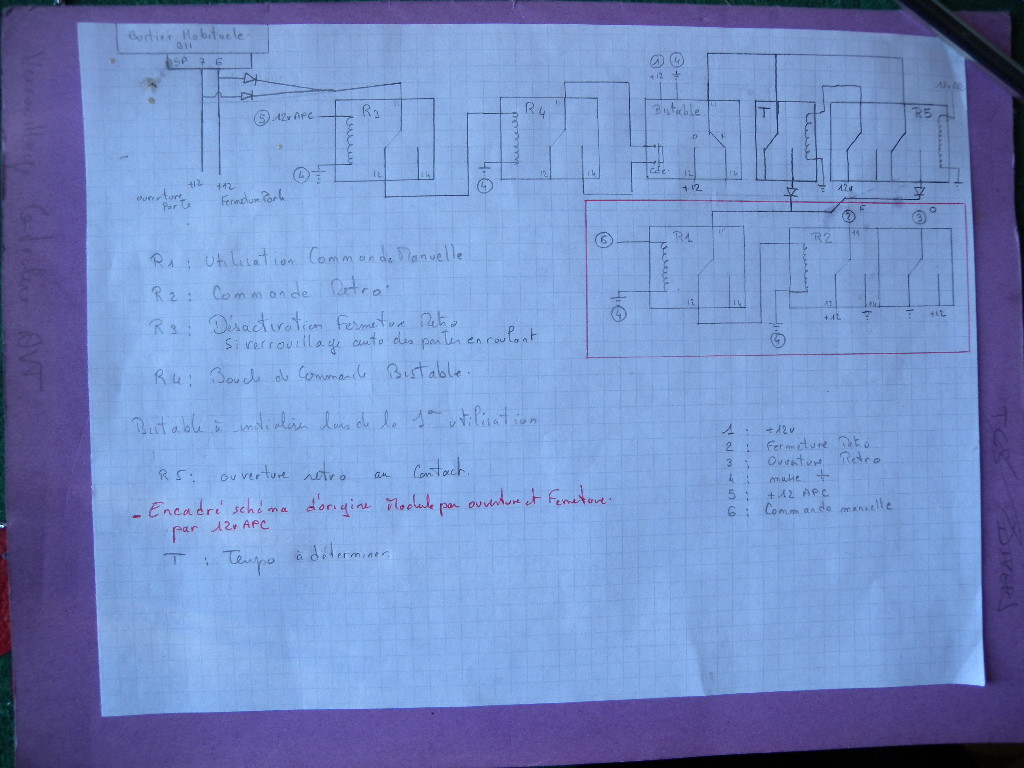 Boitier Habitacle
BH
5P 7 6
5 12v APC
R3
4
12 14
+12 +12
ouverture Porte
Fermeture Porte
11
R4
4
12 14
1 4
+12
Bistable
Cde
+12
T
R5
12v
2 F
3 O
6
R1
11
4
12 14
R2
11
4
12 14
+12 +12
R1 : Utilisation Commande Manuelle
R2 : Commande Retro
R3 : Désactivation Fermeture Retro
Si verrouillage auto des portes en roulant
R4 : Boucle de Commande Bistable.
Bistable à initialiser lors de la 1ere utilisation
R5 : ouverture retro au Contact.
- Encadré schéma d'origine Module par ouverture et Fermeture.
par 12v APC
T : Tempo à déterminer
1 : +12v
2 : Fermeture Retro
3 : Ouverture Retro
4 : masse
5 : +12 APC
6 : Commande manuelle